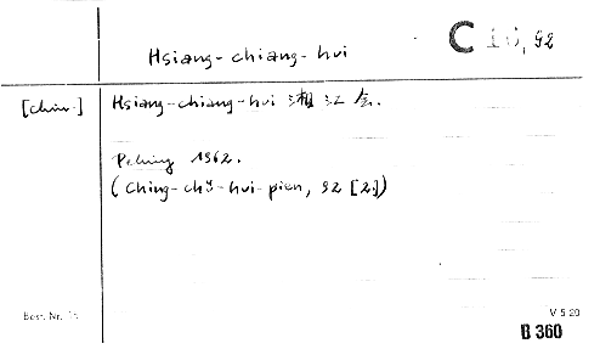 Hsiang-chiang-hui
C 10, 92
[chin.] Hsiang-chiang-hui 湘江会.
Peking 1962.
(Ching-chü-hui-pien, 92 [2.])
Best. Nr.
V 5 20
B 360